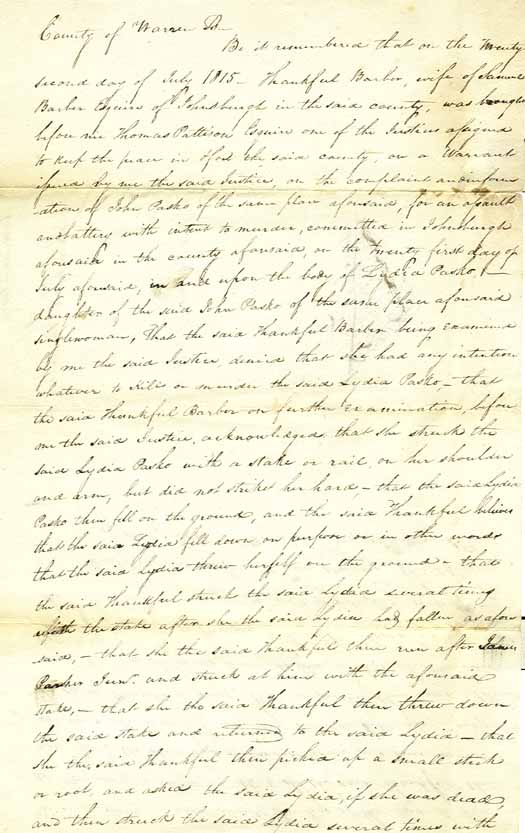 County of Warren Ss
Be it remembered that on the Twenty
second day of July 1815 - Thankful Barber, wife of Samuel
Barber Esquire of Johnsburgh in the said county, was brought
before me Thomas Pattison Esquire one of the Justices assigned
to keep the peace in & for the said county, on a Warrant
issued by me the said Justice, on the complaint and inform
-ation of John Pasko of the same place aforesaid, for an assault
and battery with intent to murder, committed in Johnsburgh
aforesaid in the county aforesaid on the twenty first day of
July aforesaid, in and upon the body of Lydia Pasko, -
daughter of the said John Pasko of the same place aforesaid
singlewoman, That the said Thankful Barber being examined
by me the said Justice, denied that she had any intention
whatever to kill or murder the said Lydia Pasko, - that
the said Thankful Barber on further examination, before
me the said Justice, acknowledged, that she struck the
said Lydia Pasko with a stake or rail, on her shoulder
and arm, but did not strike her hard - that the said Lydia
Pasko then fell on the ground, and the said Thankful believes
that the said Lydia fell down on purpose or in other words
that the said Lydia threw herself on the ground - that
the said Thankful struck the said Lydia several times
with the stake after she the said Lydia had fallen as afore
said, - that she the said Thankful then run after James
Junr. and struck at him with the aforesaid
stake, - that she the said Thankful then threw down
the said stake and returned to the said Lydia - that
she the said Thankful then picked up a small stick
or root, and asked the said Lydia, if she was dead,
and then struck the said Lydia several times with